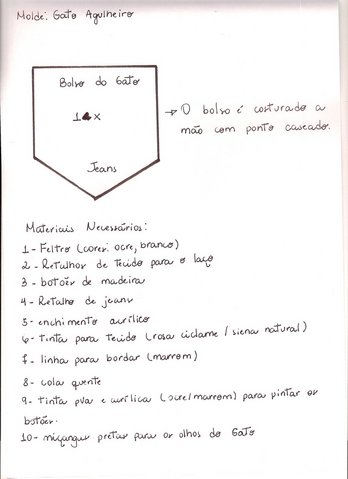 Molde: Gato Agulheiro
Bolso do Gato
1x
Jeans
→ O bolso é costurado a
mão com ponto caseado.
Materiais Necessários:
1 - Feltro (cores: ocre, branco)
2 - Retalhos de tecido para o laço
3 - botões de madeira
4 - Retalho de jeans
5 - enchimento acrílico
6 - tinta para tecido (rosa ciclame / siena natural)
7 - linha para bordar (marrom)
8 - cola quente
9 - tinta pva e acrílica (ocre/marrom) para pintar os
botões.
10 - miçangas pretas para os olhos do Gato